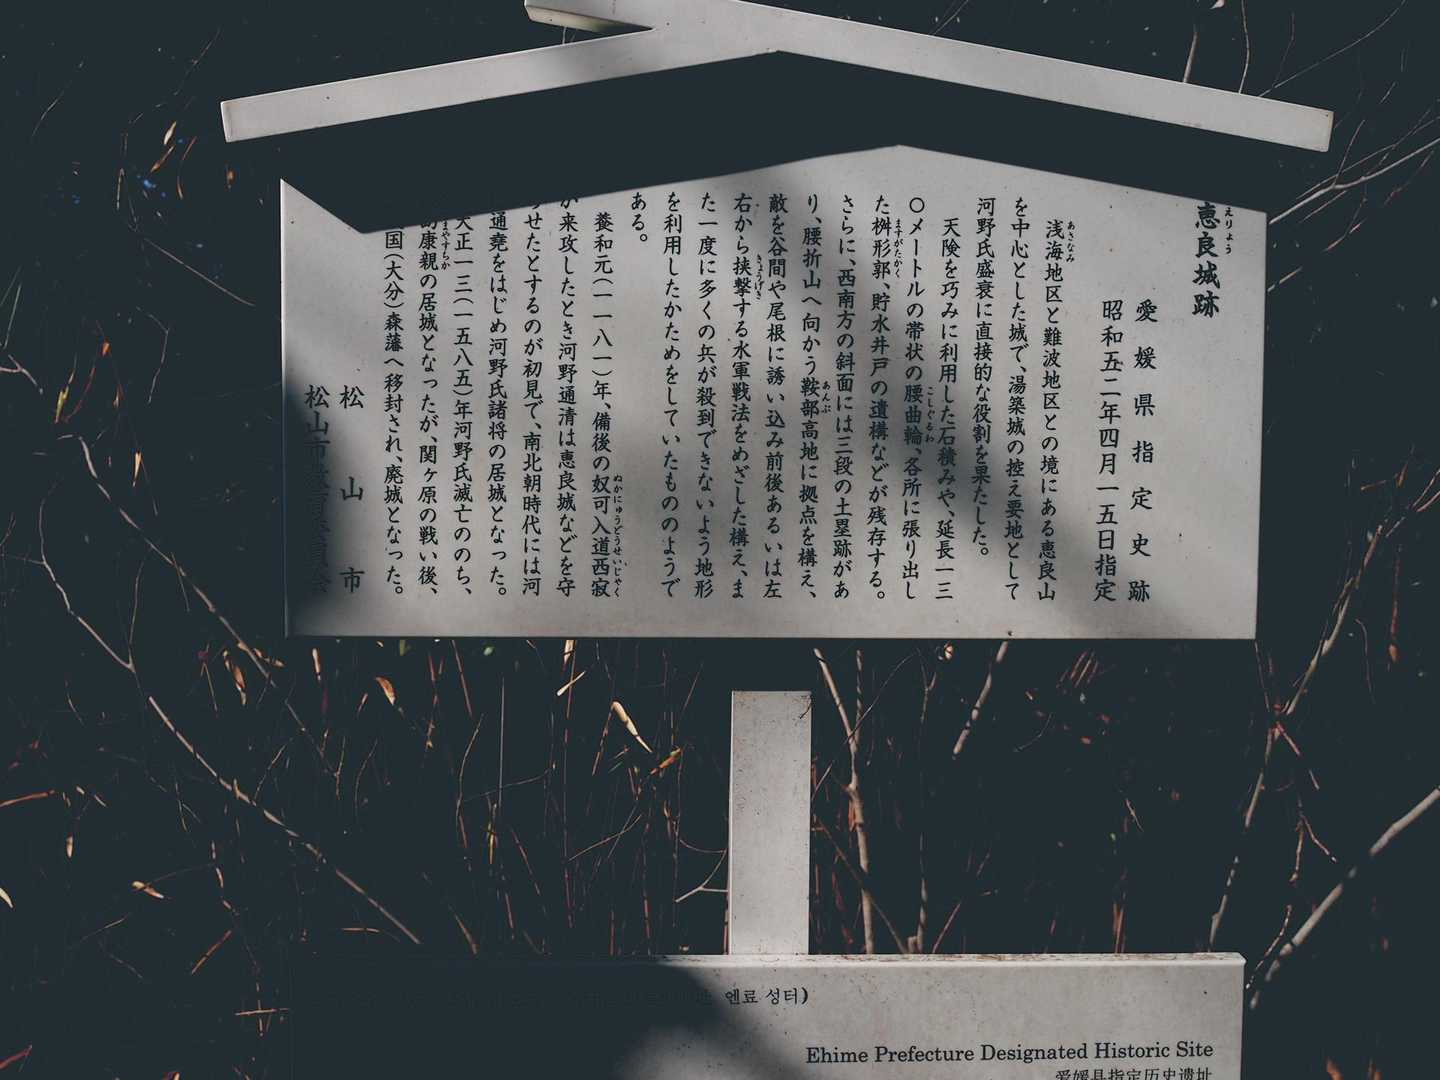 恵良城跡
愛媛県指定史跡
昭和五二年四月一五日指定
浅海地区と難波地区との境にある恵良山
を中心とした城で、湯築城の控え要地として
河野氏盛衰に直接的な役割を果たした。
天険を巧みに利用した石積みや、延長一三
〇メートルの帯状の腰曲輪、各所に張り出し
た桝形郭、貯水井戸の遺構などが残存する。
さらに、西南方の斜面には三段の土塁跡があ
り、腰折山へ向かう鞍部高地に拠点を構え、
敵を谷間や尾根に誘い込み前後あるいは左
右から挟撃する水軍戦法をめざした構え、ま
た一度に多くの兵が殺到できないよう地形
を利用したかためをしていたもののようで
ある。
養和元(一一八一)年、備後の奴可入道西寂
が来攻したとき河野通清は恵良城などを守
らせたとするのが初見で、南北朝時代には河
通堯をはじめ河野氏諸将の居城となった。
天正一三(一五八五)年河野氏滅亡ののち、
康親の居城となったが、関ヶ原の戦い後、
国(大分)森藩へ移封され、廃城となった。
松山市
松山市
엔료 성터)
Ehime Prefecture Designated Historic Site
爱媛县指定历史遗址